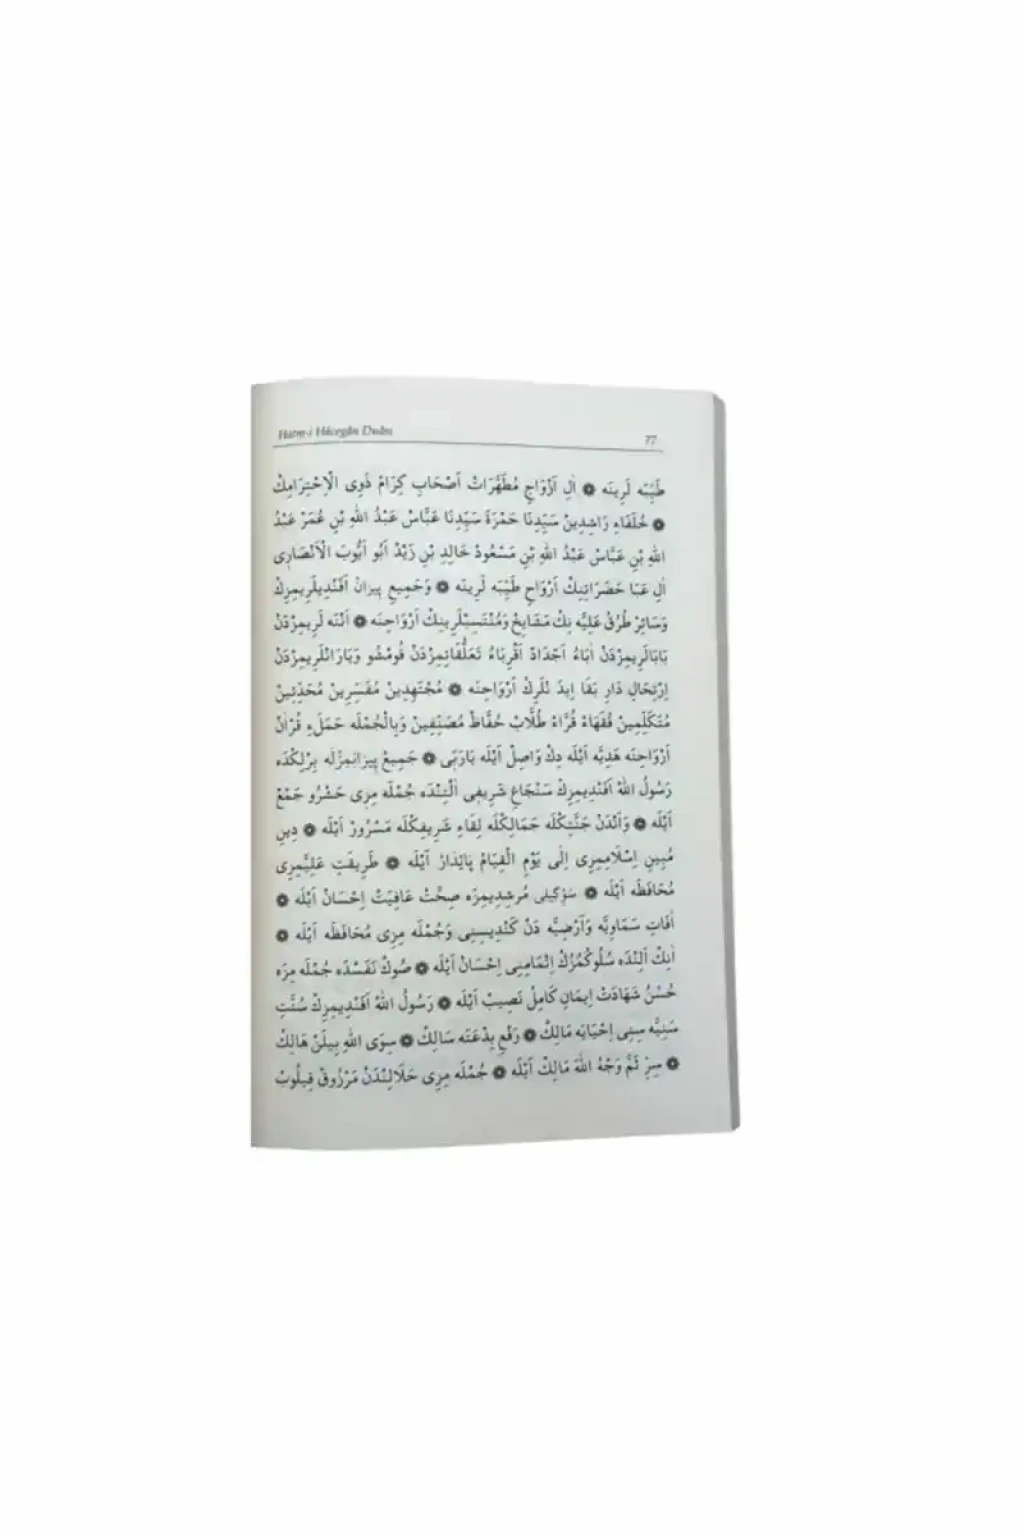 Hatm-i Hâcegân Duâsı 77
طَيِّبَه لَرِينَه ۞ اٰلِ اَزْوَاجِ مُطَهَّرَاتْ اَصْحَابِ كِرَامْ ذَوِى الْاِحْتِرَامِكْ
۞ خُلَفَاءِ رَاشِدِينْ سَيِّدِنَا حَمْزَةَ سَيِّدِنَا عَبَّاسْ عَبْدُ اللهِ بْنِ عُمَرْ عَبْدُ
اللهِ بْنِ عَبَّاسْ عَبْدُ اللهِ بْنِ مَسْعُودْ خَالِدِ بْنِ زَيْدْ اَبُو اَيُّوبَ الْاَنْصَارِى
اٰلِ عَبَا حَضَرَاتِنِكْ اَرْوَاحِ طَيِّبَه لَرِينَه ۞ وَجَمِيعِ پِيرَانْ اَفَنْدِيلَرِيمِزِكْ
وَسَائِرْ طُرُقِ عَلِيَّه نِكْ مَشَايِخْ وَمُنْتَسِبْلَرِينِكْ اَرْوَاحِنَه ۞ اَنْنَه لَرِيمِزْدَنْ
بَابَالَرِيمِزْدَنْ اٰبَاءْ اَجْدَادْ اَقْرِبَاءْ تَعَلُّقَاتِمِزْدَنْ قُومْشُو وَيَارَانْلَرِيمِزْدَنْ
اِرْتِحَالِ دَارِ بَقَا اِيدَ نْلَرِكْ اَرْوَاحِنَه ۞ مُجْتَهِدِينْ مُفَسِّرِينْ مُحَدِّثِينْ
مُتَكَلِّمِينْ فُقَهَاءْ قُرَّاءْ طُلَّابْ حُفَّاظْ مُصَنِّفِينْ وَبِالْجُمْلَه حَمَلَءِ قُرْاٰنْ
اَرْوَاحِنَه هَدِيَّه اَيْلَه دِكْ وَاصِلْ اَيْلَه يَارَبِّى ۞ جَمِيعْ پِيرَانِمِزْلَه بِرْلِكْدَه
رَسُولُ اللهْ اَفَنْدِيمِزِكْ سَنْجَاغِ شَرِيفِى اٰلْتِنْدَه جُمْلَه مِزِى حَشْرُو جَمْعْ
اَيْلَه ۞ وَاٰنْدَنْ جَنَّتِكْلَه جَمَالِكْلَه لِقَاءِ شَرِيفِكْلَه مَسْرُورْ اَيْلَه ۞ دِينِ
مُبِينِ اِسْلَامِمِزِى اِلٰى يَوْمِ الْقِيَامْ پَايِدَارْ اَيْلَه ۞ طَرِيقَتِ عَلِيَّمِزِى
مُحَافَظَه اَيْلَه ۞ سَوْگِيلِى مُرشِدِيمِزَه صِحَّتْ عَافِيَتْ اِحْسَانْ اَيْلَه ۞
اٰفَاتِ سَمَاوِيَّه وَاَرْضِيَّه دَنْ كَنْدِيسِنِى وَجُمْلَه مِزِى مُحَافَظَه اَيْلَه ۞
اٰنِكْ اَلِنْدَه سُلُوكُمُزُكْ اِتْمَامِنِى اِحْسَانْ اَيْلَه ۞ صُوكْ نَفَسْدَه جُمْلَه مِزَه
حُسْنُ شَهَادَتْ اِيمَانِ كَامِلْ نَصِيبْ اَيْلَه ۞ رَسُولُ اللهْ اَفَنْدِيمِزِكْ سُنَّتِ
سَنِيَّه سِنِى اِحْيَايَه مَالِكْ ۞ رَفْعِ بِدْعَتَه سَالِكْ ۞ سِوَى اللهِ بِيلَنْ هَالِكْ
۞ سِرِّ ثَمَّ وَجْهُ اللهَ مَالِكْ اَيْلَه ۞ جُمْلَه مِزِى حَلَالِنْدَنْ مَرْزُوقْ قِيلُوبْ